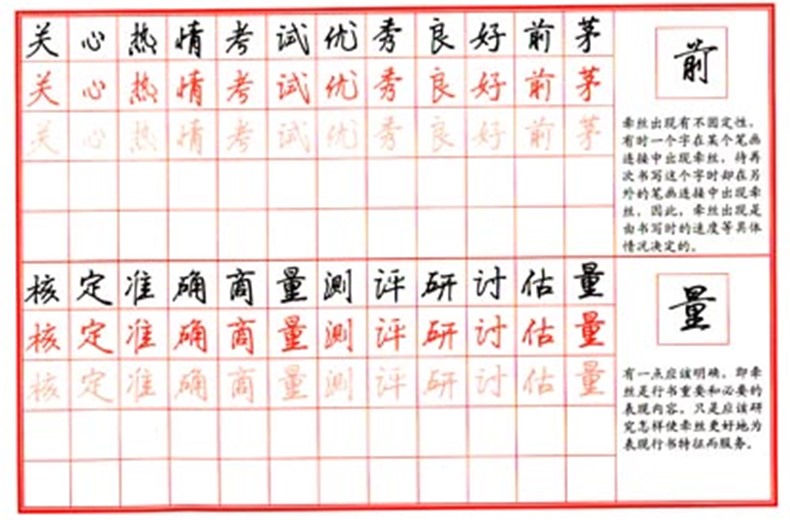 关心热情考试优秀良好前茅
关心热情考试优秀良好前茅
关心热情考试优秀良好前茅
前
牵丝出现有不固定性，
有时一个字在某个笔画
连接中出现牵丝，待再
次书写这个字时却在另
外的笔画连接中出现牵
丝，因此，牵丝出现是
由书写时的速度等具体
情况决定的。
核定准确商量测评研讨估量
核定准确商量测评研讨估量
核定准确商量测评研讨估量
量
有一点应该明确，即牵
丝是行书重要和必要的
表现内容，只是应该研
究怎样使牵丝更好地为
表现行书特征而服务。